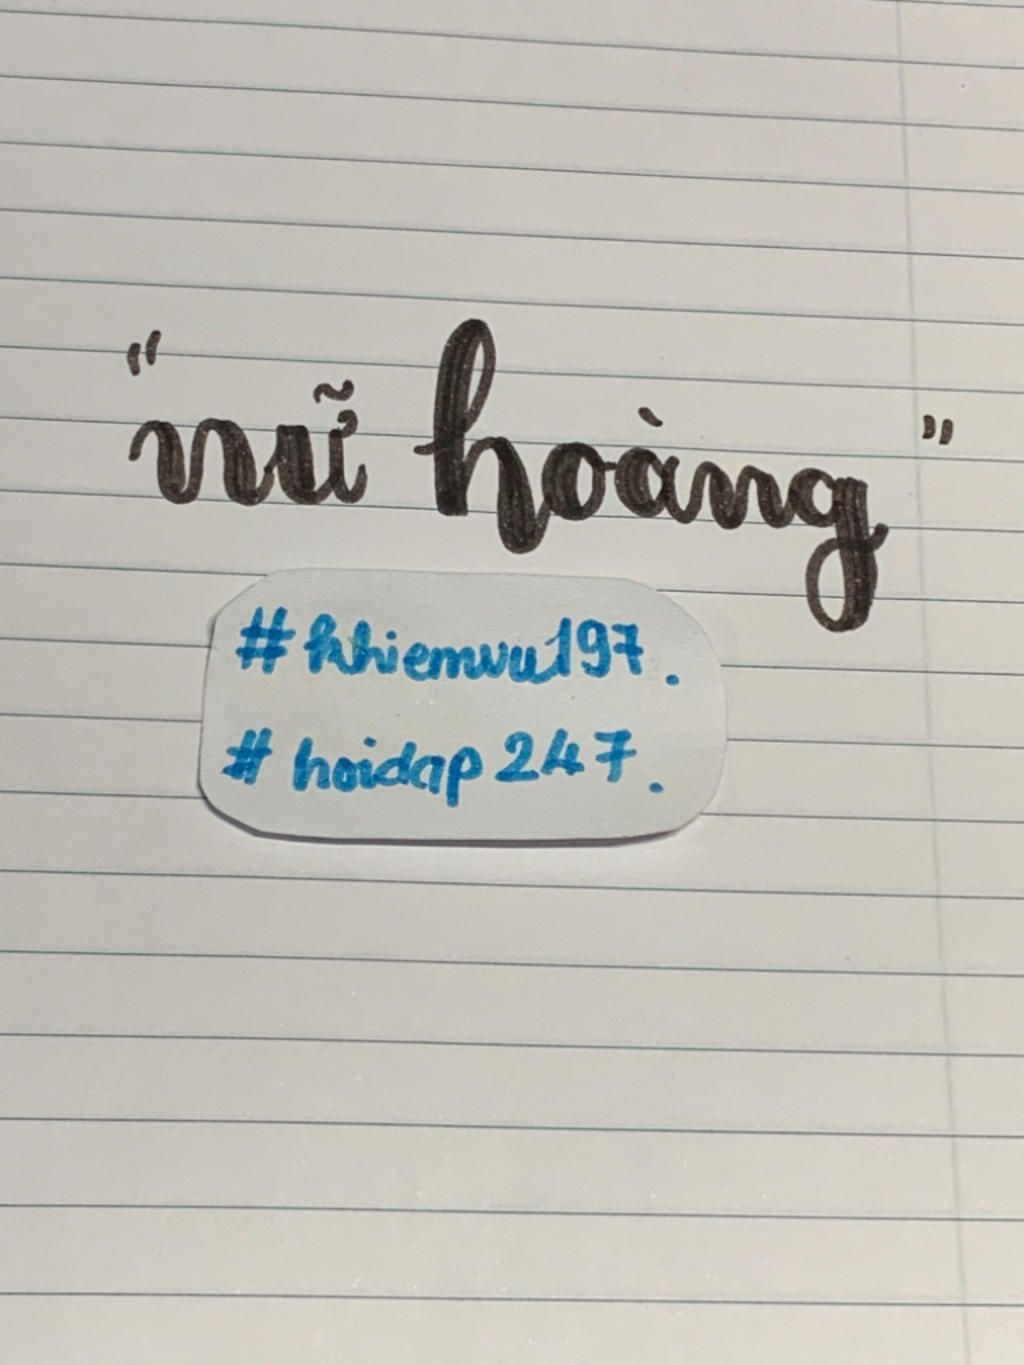 "nữ hoàng"
#nhiemvu197.
#hoidap247.